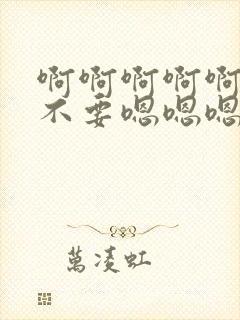 啊啊啊啊啊
不要嗯嗯嗯
萬凌虹